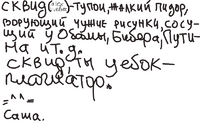 СКВИД( )-ТУПОЙ, ЖАЛКИЙ ПИДОР,
ВОРУЮЩИЙ ЧУЖИЕ РИСУНКИ, СОСУ-
ЩИЙ У ОБАМЫ, БИБЕРА, ПУТИ-
НА И Т.Д.
СКВИД, ТЫ УЕБОК-
ПЛАГИАТОР.
=^^=
Саша.